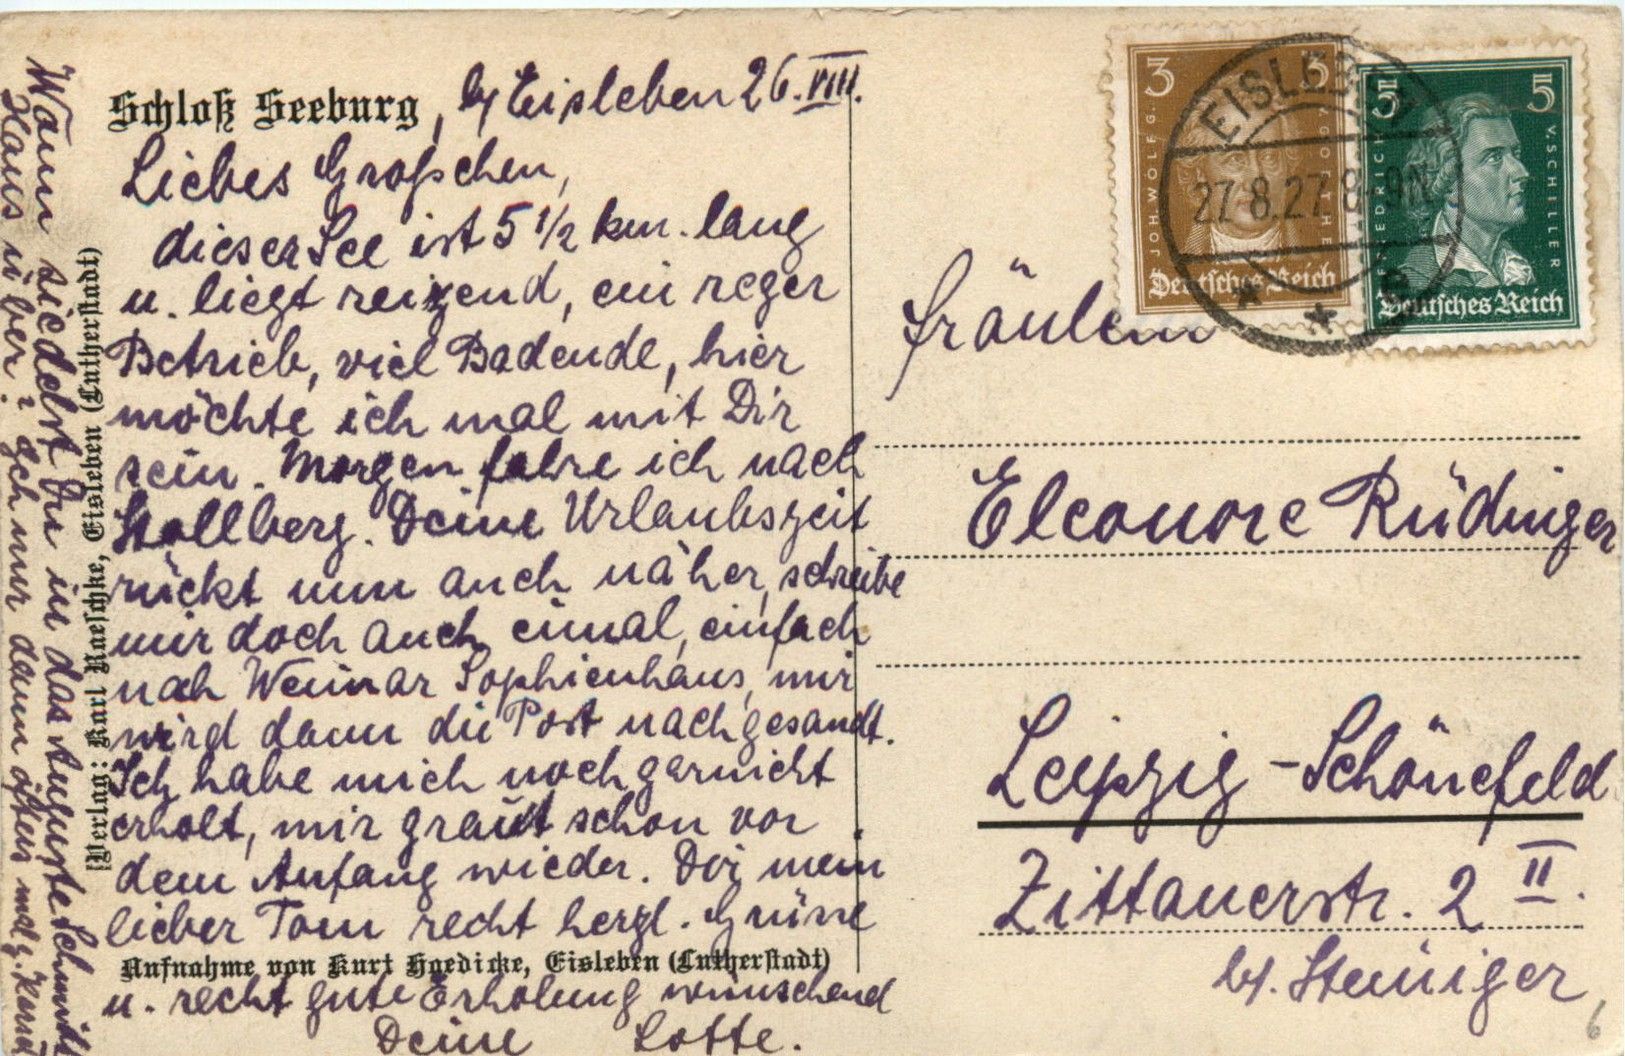 Schloß Seeburg, b/ Eisleben 26.VIII.
Liebes Großchen,
dieser See ist 5 1/2 km. lang
u. liegt reizend, ein reger
Betrieb, viel Badende, hier
möchte ich mal mit Dir
sein. Morgen fahre ich nach
Stollberg. Deine Urlaubszeit
rückt nun auch näher, schreibe
mir doch auch einmal, einfach
nach Weimar Sophienhaus, mir
wird dann die Post nachgesandt.
Ich habe mich noch garnicht
erholt, mir graut schon vor
dem Anfang wieder. Dir mein
lieber Tom recht herzl. Grüsse
Aufnahme von Kurt Haedicke, Eisleben (Lutherstadt)
u. recht gute Erholung wünschend
Deine Lotte.
Wann siedelst Du in das Auguste Schmidt
Haus über? Ich nur dann öfters mal z.
[Verlag: Karl Raeschke, Eisleben (Lutherstadt)
3 3
JOH. WOLFG. V. GOETHE
Deutsches Reich
5 5
FRIEDRICH V. SCHILLER
Deutsches Reich
EISLEBEN
27.8.27. 8-9N.
Fräulein
Eleonore Rüdinger
Leipzig-Schönefeld
Zittauerstr. 2 II.
b/. Steiniger
6